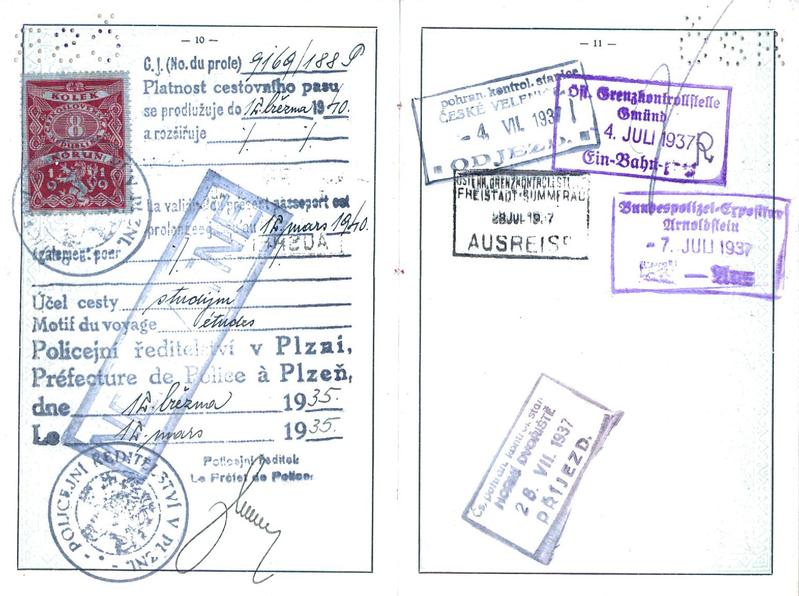 — 10 —
Č.j. (No. du prole) 9169/1889
Platnost cestovního pasu
se prodlužuje do 12. března 1940.
a rozšiřuje
KOLEK
8
KORUN
19 19
La validité du présent passeport est
prolongée au 12 mars 1940.
également pour
Účel cesty studijní
Motif du voyage études
Policejní ředitelství v Plzni,
Préfecture de Police à Plzeň,
dne 12. března 1935.
Le 12. mars 1935.
Policejní ředitel
Le Préfet de Police.
POLICEJNÍ ŘEDITELSTVÍ V PLZNI.
— 11 —
pohran. kontrol. stanice
ČESKÉ VELENICE
- 4. VII. 1937
ODJEZD.
Öst. Grenzkontrollstelle
Gmünd
4. JULI 1937
Ein-Bahn-
ÖSTERR. GRENZKONTROLLST.
FREISTADT-SUMMERAU
28 JUL 1937
AUSREISE
Bundespolizei-Expositur
Arnoldstein
- 7. JULI 1937
— Aus
Čs. pohran. kontrol. stan.
HORNÍ DVOŘIŠTĚ
28. VII. 1937
PŘÍJEZD.